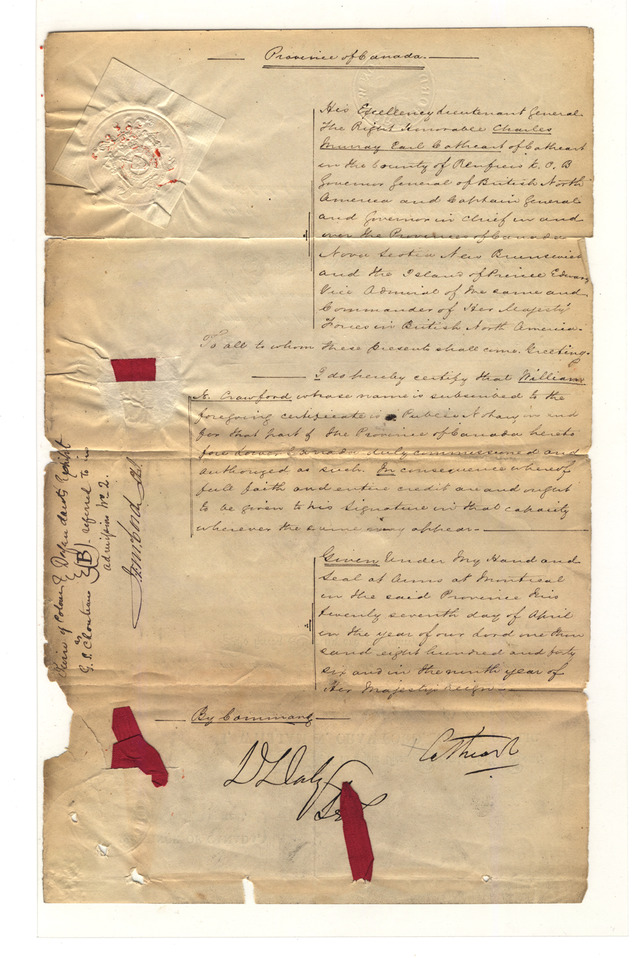 Province of Canada.
His Excellency Lieutenant General
The Right Honorable Charles
Murray Earl Cathcart of Cathcart
in the County of Renfrew K. C. B
Governor General of British North
America and Captain General
and Governor in Chief in and
over the Provinces of Canada
Nova Scotia New Brunswick
and the Island of Prince Edward
Vice Admiral of the same and
Commander of Her Majesty's
Forces in British North America.
To all to whom these Presents shall come, Greeting.
I do hereby certify that William
Crawford whose name is subscribed to the
foregoing certificate is a Public Notary in and
for that part of the Province of Canada hereto
fore Lower Canada duly commissioned and
authorized as such. In consequence whereof
full faith and entire credit are and ought
to be given to his signature in that capacity
wherever the same may appear.
Given Under My Hand and
Seal at Arms at Montreal
in the said Province this
twenty seventh day of April
in the year of our Lord one thou
sand eight hundred and forty
six and in the ninth year of
Her Majesty's reign
By Command
Cathcart
D Daly
Sec
Defendants Exhibit
B referred to in
admission No 2.